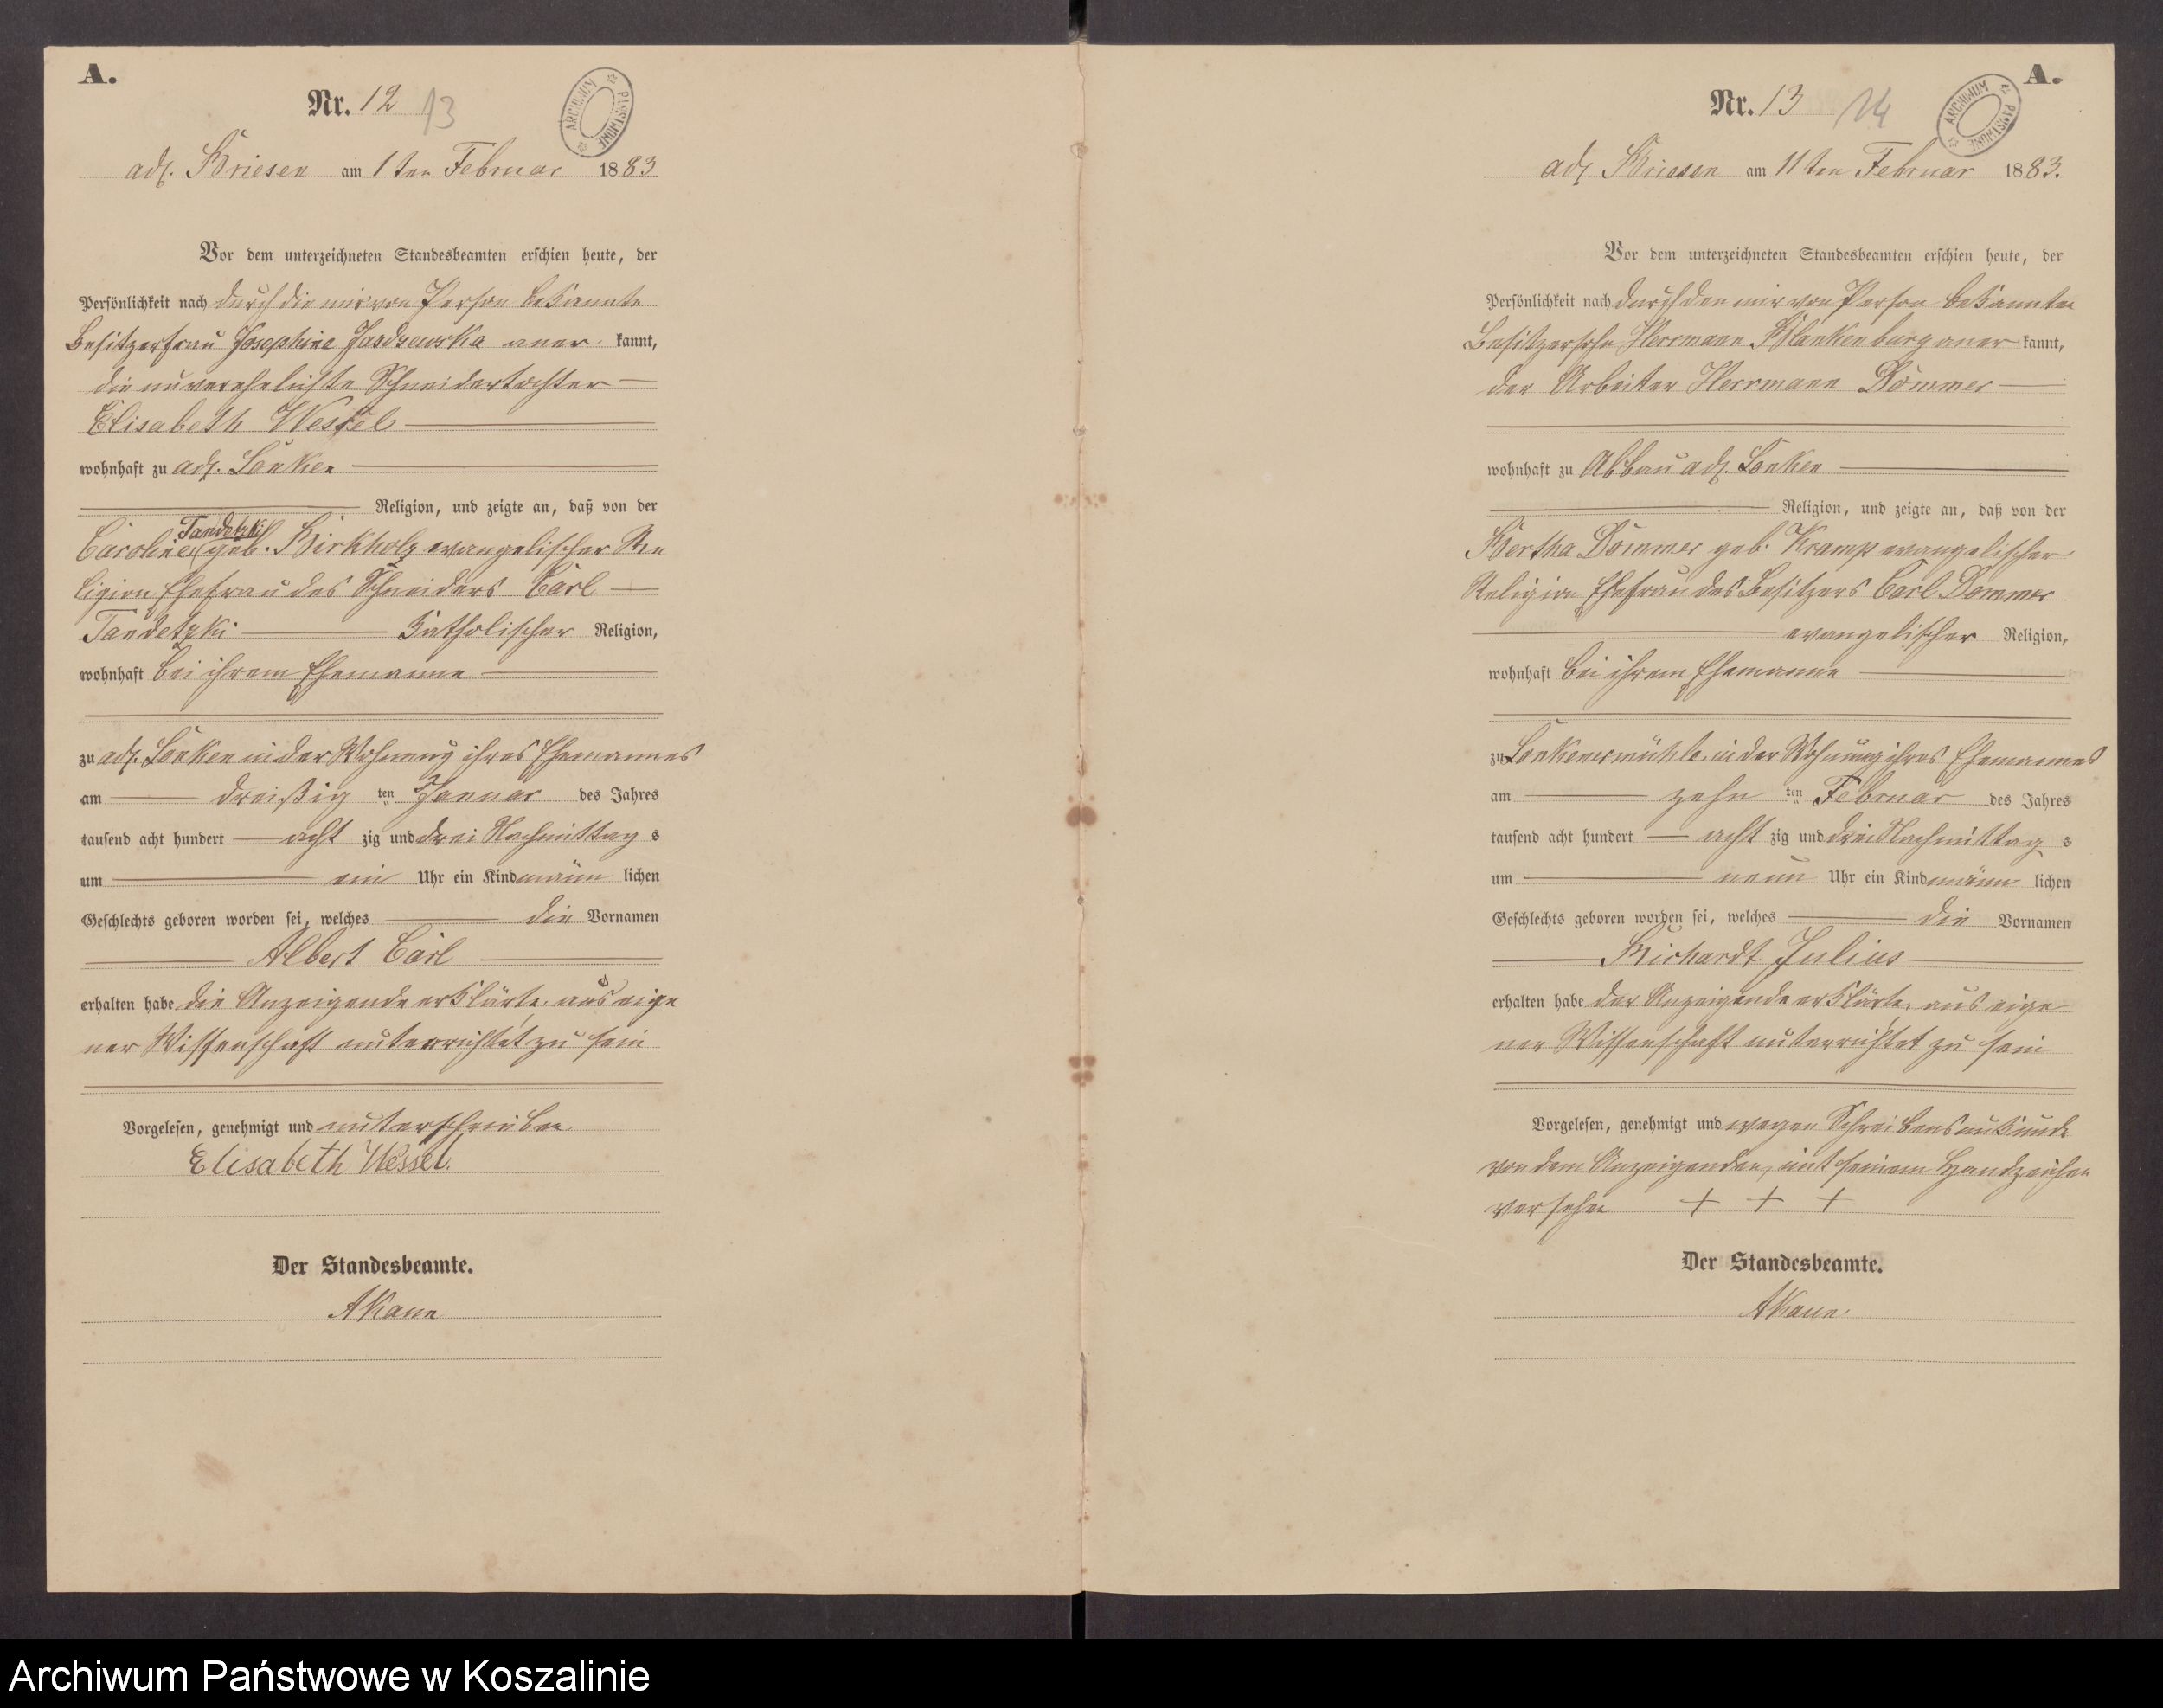 A.
Nr. 12 13
ARCHIWUM PAŃSTWOWE
adl. Briesen am 1ten Februar 1883
Vor dem unterzeichneten Standesbeamten erschien heute, der
Persönlichkeit nach durch die mir von Person bekannte
Besitzerfrau Josephine Jasdzewska aner kannt,
die unverehelichte Schneidertochter
Elisabeth Wessel
wohnhaft zu adl. Lonken
Religion, und zeigte an, daß von der
Tandetzki
Caroline geb. Birkholz evangelischer Re
ligion Ehefrau des Schneiders Carl
Tandetzki Katholischer Religion,
wohnhaft bei ihrem Ehemanne
zu adl. Lonken in der Wohnung ihres Ehemannes
am dreißig ten Januar des Jahres
tausend acht hundert acht zig und drei Nachmittag s
um ein Uhr ein Kind männ lichen
Geschlechts geboren worden sei, welches die Vornamen
Albert Carl
erhalten habe die Anzeigende erklärte, aus eige
ner Wissenschaft unterrichtet zu sein
Vorgelesen, genehmigt und unterschrieben
Elisabeth Wessel.
Der Standesbeamte.
A.
Nr. 13 14
ARCHIWUM PAŃSTWOWE
adl. Briesen am 11ten Februar 1883.
Vor dem unterzeichneten Standesbeamten erschien heute, der
Persönlichkeit nach durch den mir von Person bekannten
Besitzersohn Herrmann Blankenburg aner kannt,
der Arbeiter Herrmann Dömmer
wohnhaft zu Abbau adl. Lonken
Religion, und zeigte an, daß von der
Bertha Dömmer geb. Kramp evangelischer
Religion Ehefrau des Besitzers Carl Dömmer
evangelischer Religion,
wohnhaft bei ihrem Ehemanne
zu Lonkenermühle in der Wohnung ihres Ehemannes
am zehn ten Februar des Jahres
tausend acht hundert acht zig und drei Nachmittag s
um neun Uhr ein Kind männ lichen
Geschlechts geboren worden sei, welches die Vornamen
Richardt Julius
erhalten habe der Anzeigende erklärte, aus eige
ner Wissenschaft unterrichtet zu sein
Vorgelesen, genehmigt und wegen Schreibensunkunde
von dem Anzeigenden, mit seinem Handzeichen
versehen + + +
Der Standesbeamte.
Archiwum Państwowe w Koszalinie